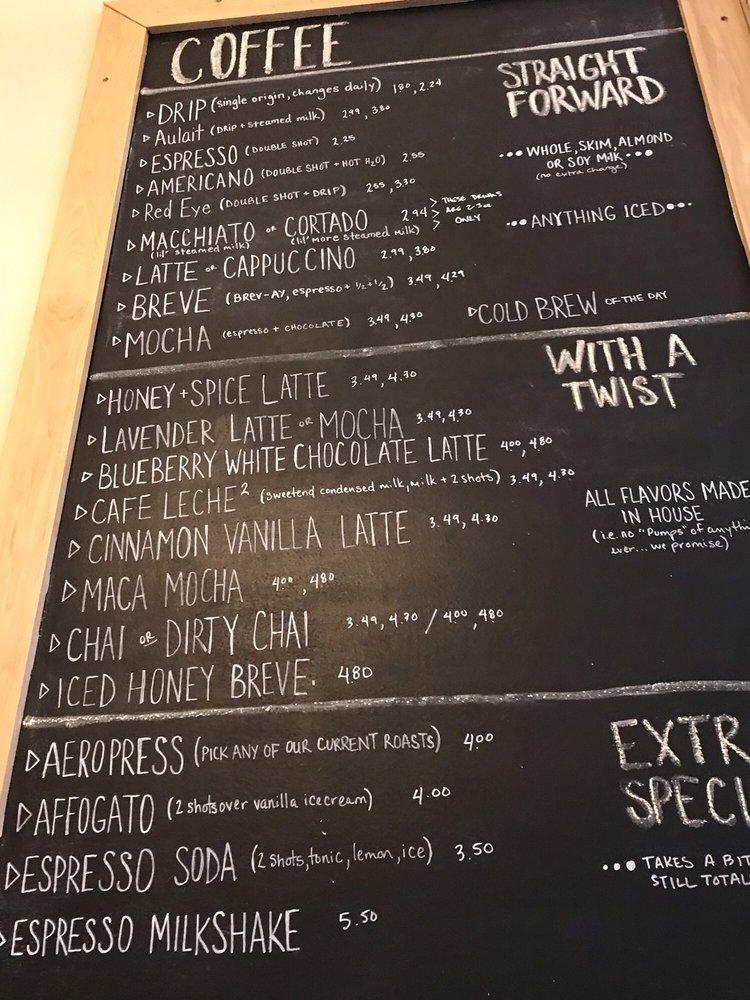 COFFEE
STRAIGHT
FORWARD
▹DRIP (single origin, changes daily) 180, 2.24
▹Aulait (DRIP + steamed milk) 299, 380
▹ESPRESSO (DOUBLE SHOT) 2.25
▹AMERICANO (DOUBLE SHOT + HOT H2O) 2.55
▹Red Eye (DOUBLE SHOT + DRIP) 255, 330
▹MACCHIATO or CORTADO 2.94 > THESE DRINKS
(lil' steamed milk) (lil' more steamed milk) > ARE 2-3oz
> ONLY
▹LATTE or CAPPUCCINO 2.99, 380
▹BREVE (BREV-AY, espresso + 1/2 + 1/2) 3.49, 4.29
▹MOCHA (espresso + CHOCOLATE) 3.49, 4.30
••• WHOLE, SKIM, ALMOND
OR SOY MILK •••
(no extra charge)
••• ANYTHING ICED •••
▹COLD BREW OF THE DAY
WITH A
TWIST
▹HONEY + SPICE LATTE 3.49, 4.30
▹LAVENDER LATTE or MOCHA 3.49, 430
▹BLUEBERRY WHITE CHOCOLATE LATTE 400, 480
▹CAFE LECHE² (sweetend condensed milk, milk + 2 shots) 3.49, 4.30
▹CINNAMON VANILLA LATTE 3.49, 4.30
▹MACA MOCHA 400, 480
▹CHAI or DIRTY CHAI 3.49, 4.30 / 400, 480
▹ICED HONEY BREVE. 480
ALL FLAVORS MADE
IN HOUSE
(i.e. no "Pumps" of anyth
ever... we promise)
EXTR
SPECI
▹AEROPRESS (PICK ANY OF OUR CURRENT ROASTS) 400
▹AFFOGATO (2 shots over vanilla icecream) 4.00
▹ESPRESSO SODA (2 shots, tonic, lemon, ice) 3.50
▹ESPRESSO MILKSHAKE 5.50
••• TAKES A BIT
STILL TOTAL